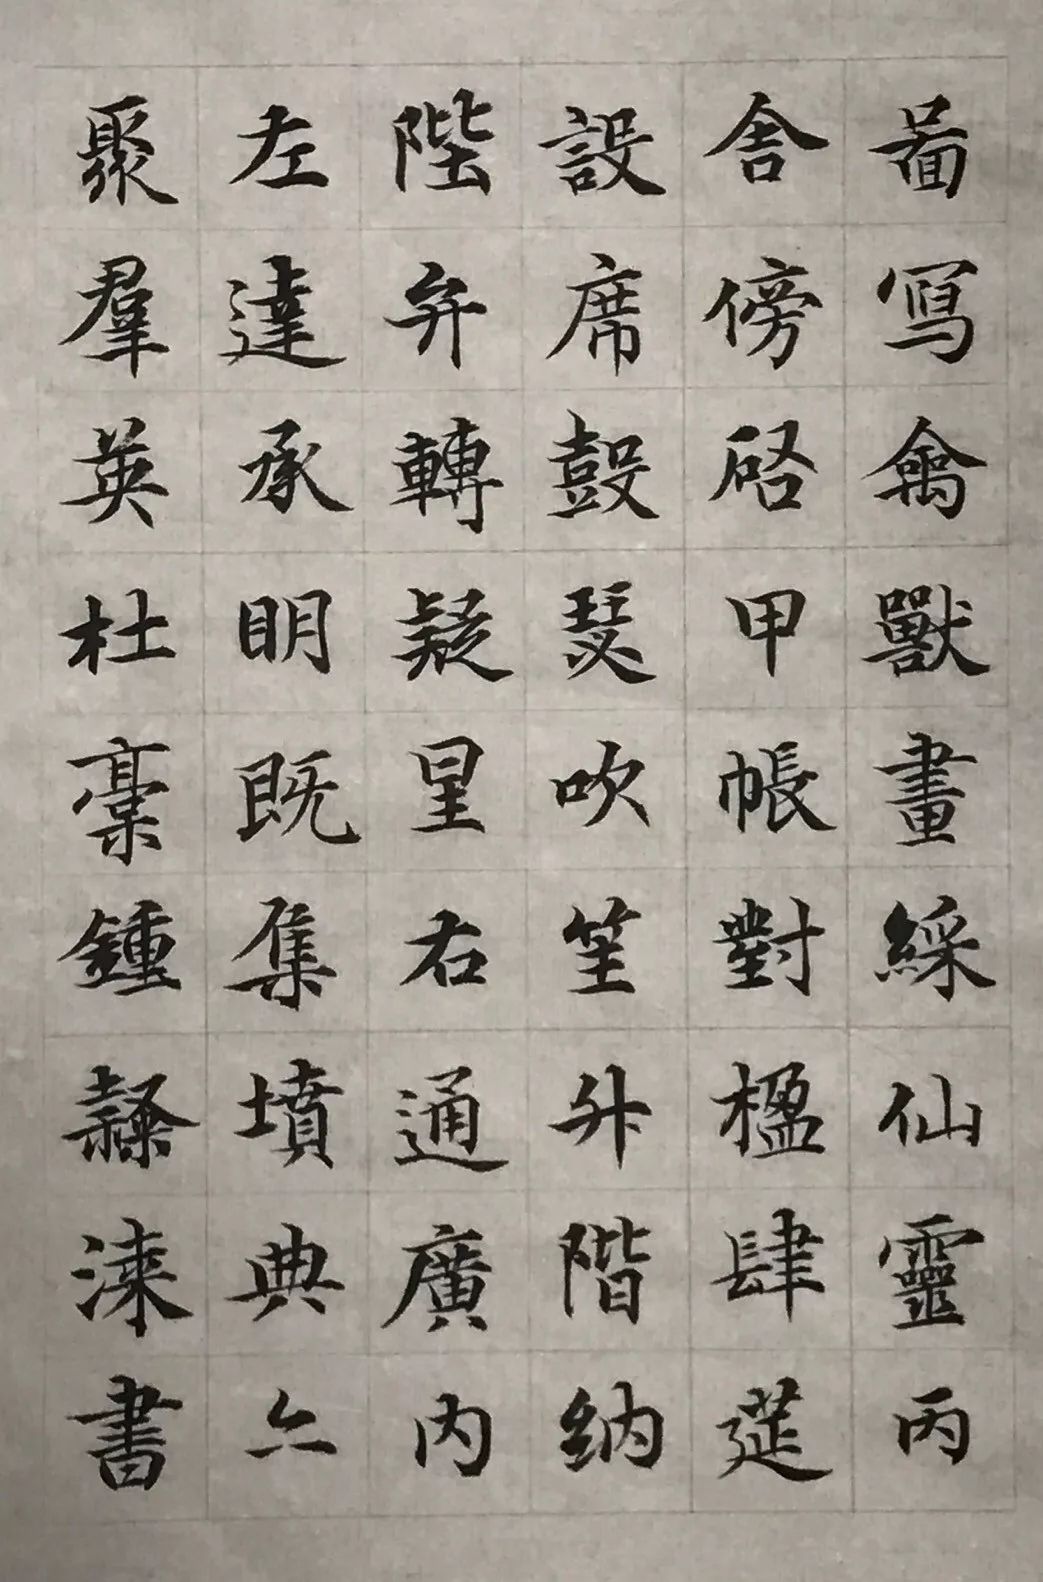 啚寫禽獸畫綵仙靈丙
舍傍啓甲帳對楹肆莚
設席鼓瑟吹笙升階納
陛弁轉疑星右通廣內
左達承明既集墳典亠
聚羣英杜稾鍾隸漆書